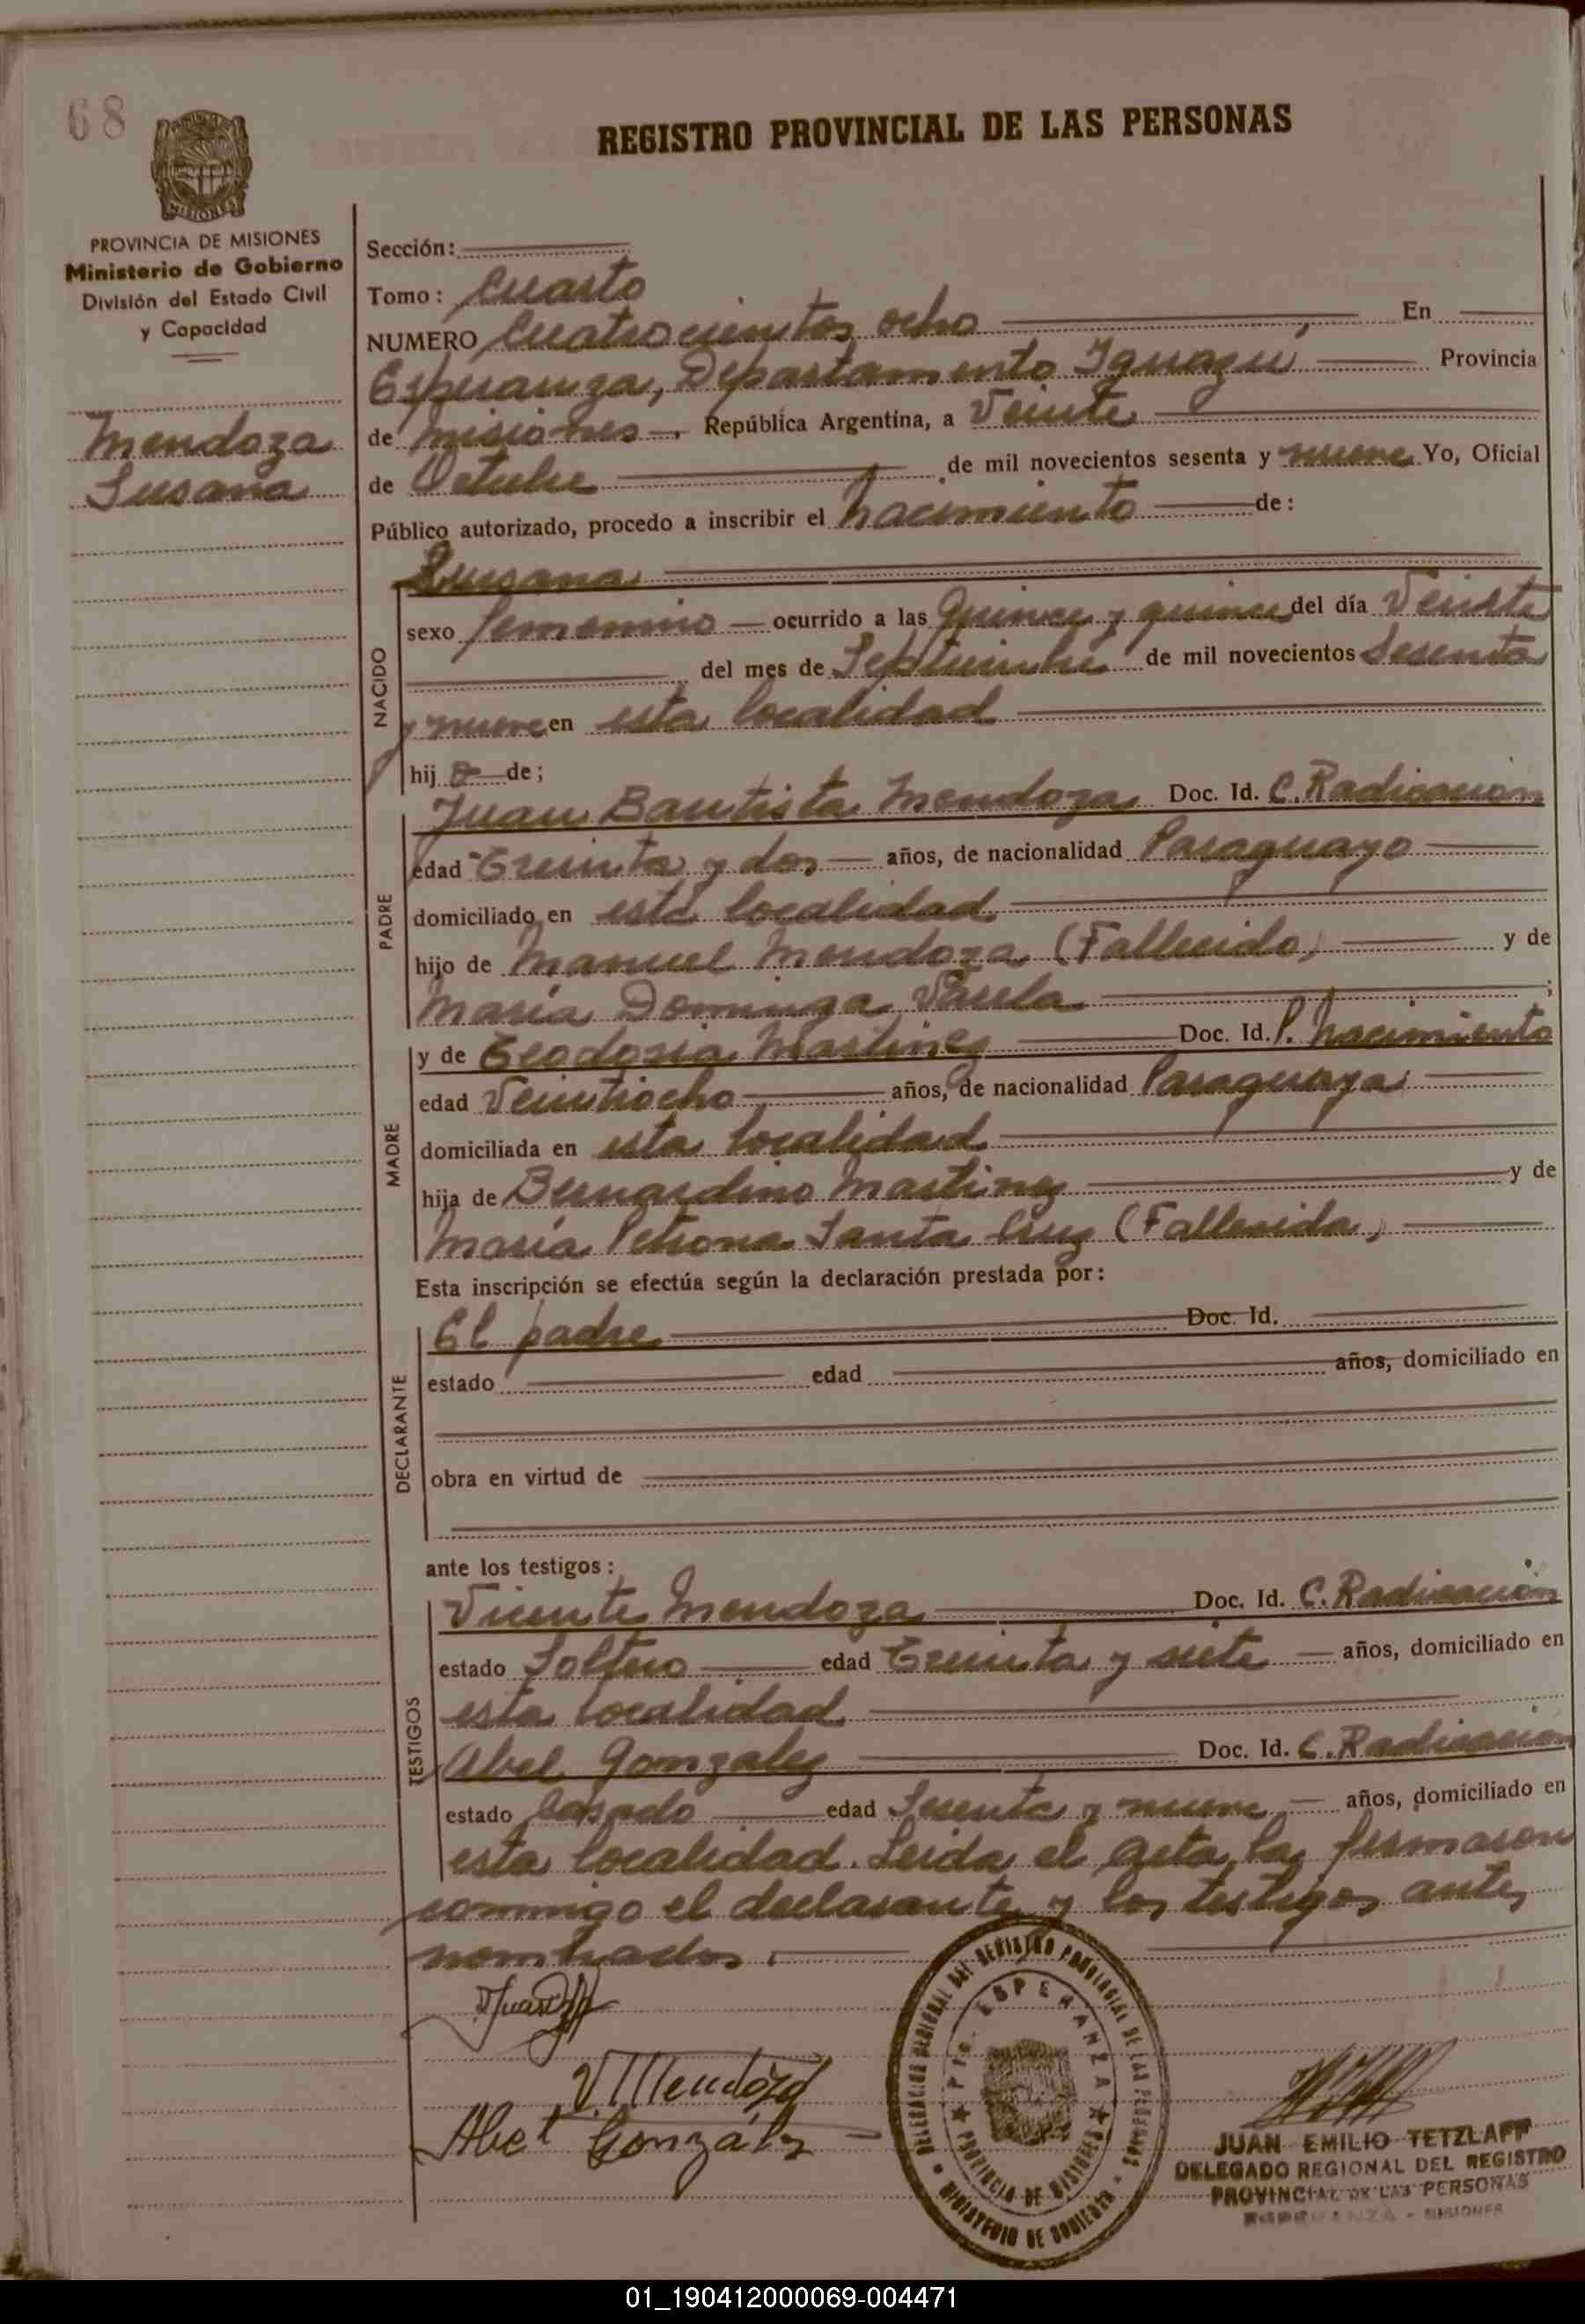 68
REGISTRO PROVINCIAL DE LAS PERSONAS
PROVINCIA DE MISIONES
Ministerio de Gobierno
División del Estado Civil
y Capacidad
Mendoza
Susana
Sección:
Tomo: Cuarto
NUMERO Cuatrocientos ocho En
Esperanza, Departamento Iguazu Provincia
de Misiones República Argentina, a Veinte
de Octubre de mil novecientos sesenta y nueve Yo, Oficial
Público autorizado, procedo a inscribir el nacimiento de:
Susana
NACIDO
sexo femenino ocurrido a las Quince y quince del día Veinte
del mes de Septiembre de mil novecientos Sesenta
y nueve en esta localidad
hij a de;
PADRE
Juan Bautista Mendoza Doc. Id. C. Radicación
edad Treinta y dos años, de nacionalidad Paraguayo
domiciliado en esta localidad
hijo de Manuel Mendoza (Fallecido) y de
María Dominga Varela ;
MADRE
y de Teodosia Martinez Doc. Id. P. nacimiento
edad Veintiocho años, de nacionalidad Paraguaya
domiciliada en esta localidad
hija de Bernardino Martinez y de
María Petrona Santa Cruz (Fallecida)
Esta inscripción se efectúa según la declaración prestada por:
DECLARANTE
El padre Doc. Id.
estado edad años, domiciliado en
obra en virtud de
ante los testigos:
TESTIGOS
Vicente Mendoza Doc. Id. C. Radicación
estado Soltero edad Treinta y siete años, domiciliado en
esta localidad
Abel Gonzalez Doc. Id. C. Radicación
estado Casado edad Sesenta y nueve años, domiciliado en
esta localidad. Leida el acta, la firmaron
conmigo el declarante y los testigos antes
nombrados.
V Mendoza
Abel González
DELEGACION REGIONAL DEL REGISTRO PROVINCIAL DE LAS PERSONAS
MINISTERIO DE GOBIERNO
Pto. ESPERANZA
PROVINCIA DE MISIONES
JUAN EMILIO TETZLAFF
DELEGADO REGIONAL DEL REGISTRO
PROVINCIAL DE LAS PERSONAS
ESPERANZA - MISIONES
01_190412000069-004471